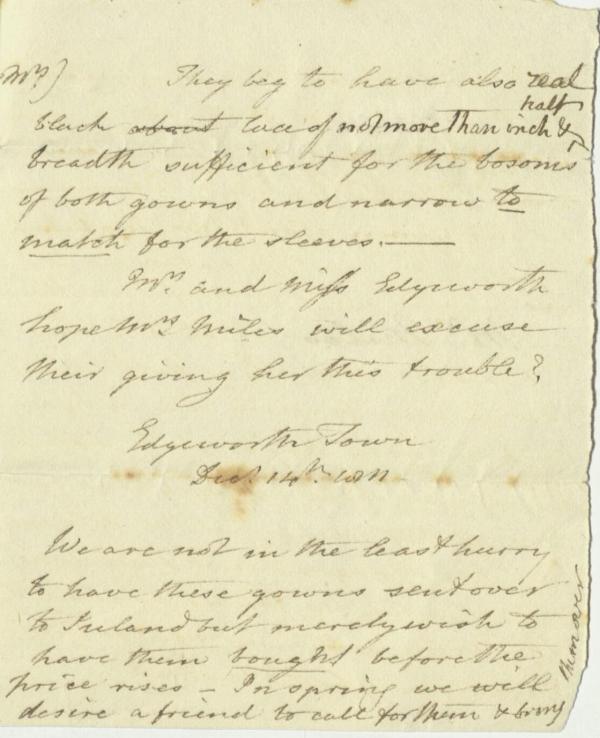 Mrs) They beg to have also real
half
black about lace of not more than inch &
breadth sufficient for the bosoms
of both gowns and narrow to
match for the sleeves. —
Mrs. and Miss Edgeworth
hope Mrs Miles will excuse
their giving her this trouble?
Edgeworth Town
Decr. 14th.
We are not in the least hurry
to have these gowns sent over
to Ireland but merely wish to
have them bought before the
price rises – In spring we will
desire a friend to call for them & bring
them over